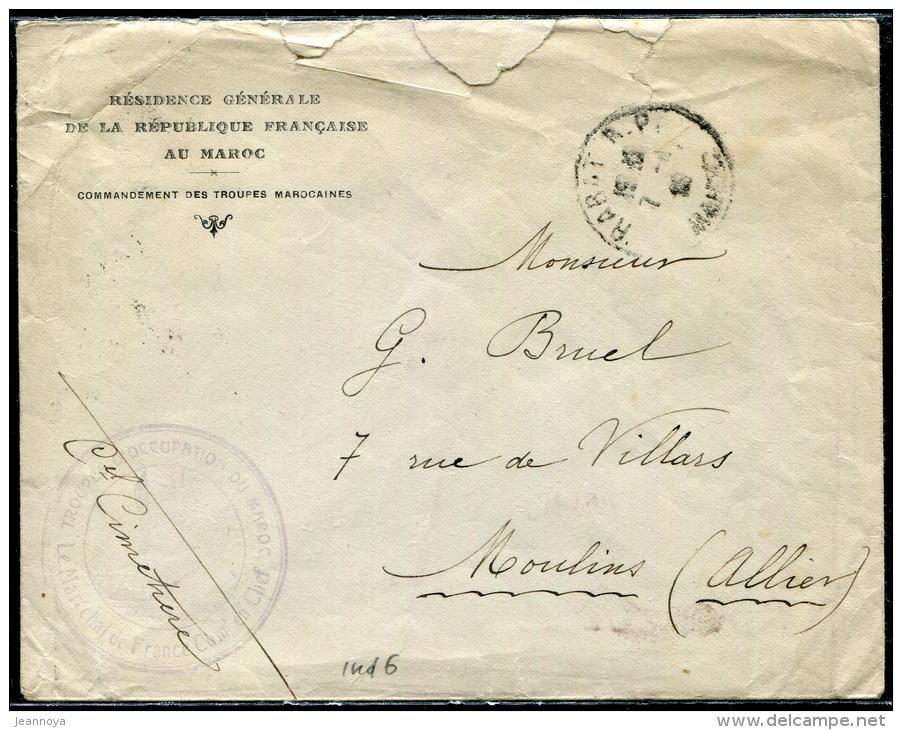 RÉSIDENCE GÉNÉRALE
DE LA RÉPUBLIQUE FRANÇAISE
AU MAROC
COMMANDEMENT DES TROUPES MAROCAINES
RABAT R.P.
MAROC
Monsieur
G. Bruel
7 rue de Villars
Moulins (Allier)
TROUPES D'OCCUPATION DU MAROC
Le Maréchal de France Comt en Chef
Cimetière
ind 6
jeannoya
www.delcampe.net